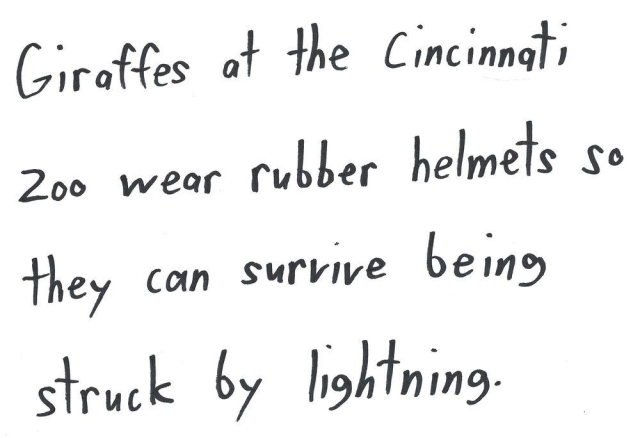 Giraffes at the Cincinnati
Zoo wear rubber helmets so
they can survive being
struck by lightning.